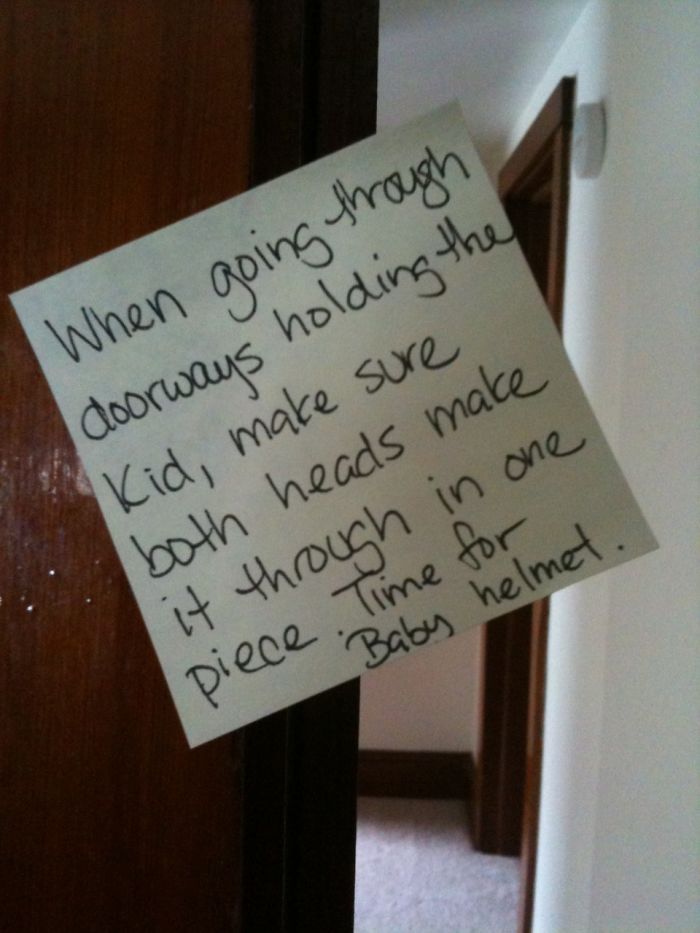 When going through
doorways holding the
Kid, make sure
both heads make
it through in one
piece. Time for
Baby helmet.